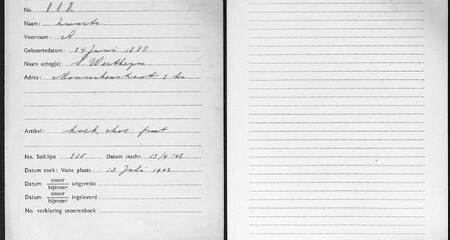 No.
Naam: Zwarts
Voornaam: A
Geboortedatum: 24 Juni 1880
Naam echtg(e): S Wertheym
Adres:
Artikel: koek, choc. fruit
No. Soll.lijst 235 Datum inschr. 13/4 '42
Datum toek: Vaste plaats 13 Juli 1902
Datum snoer/bijsnoer uitgereikt
Datum snoer/bijsnoer ingeleverd
No. verklaring snoerenboek